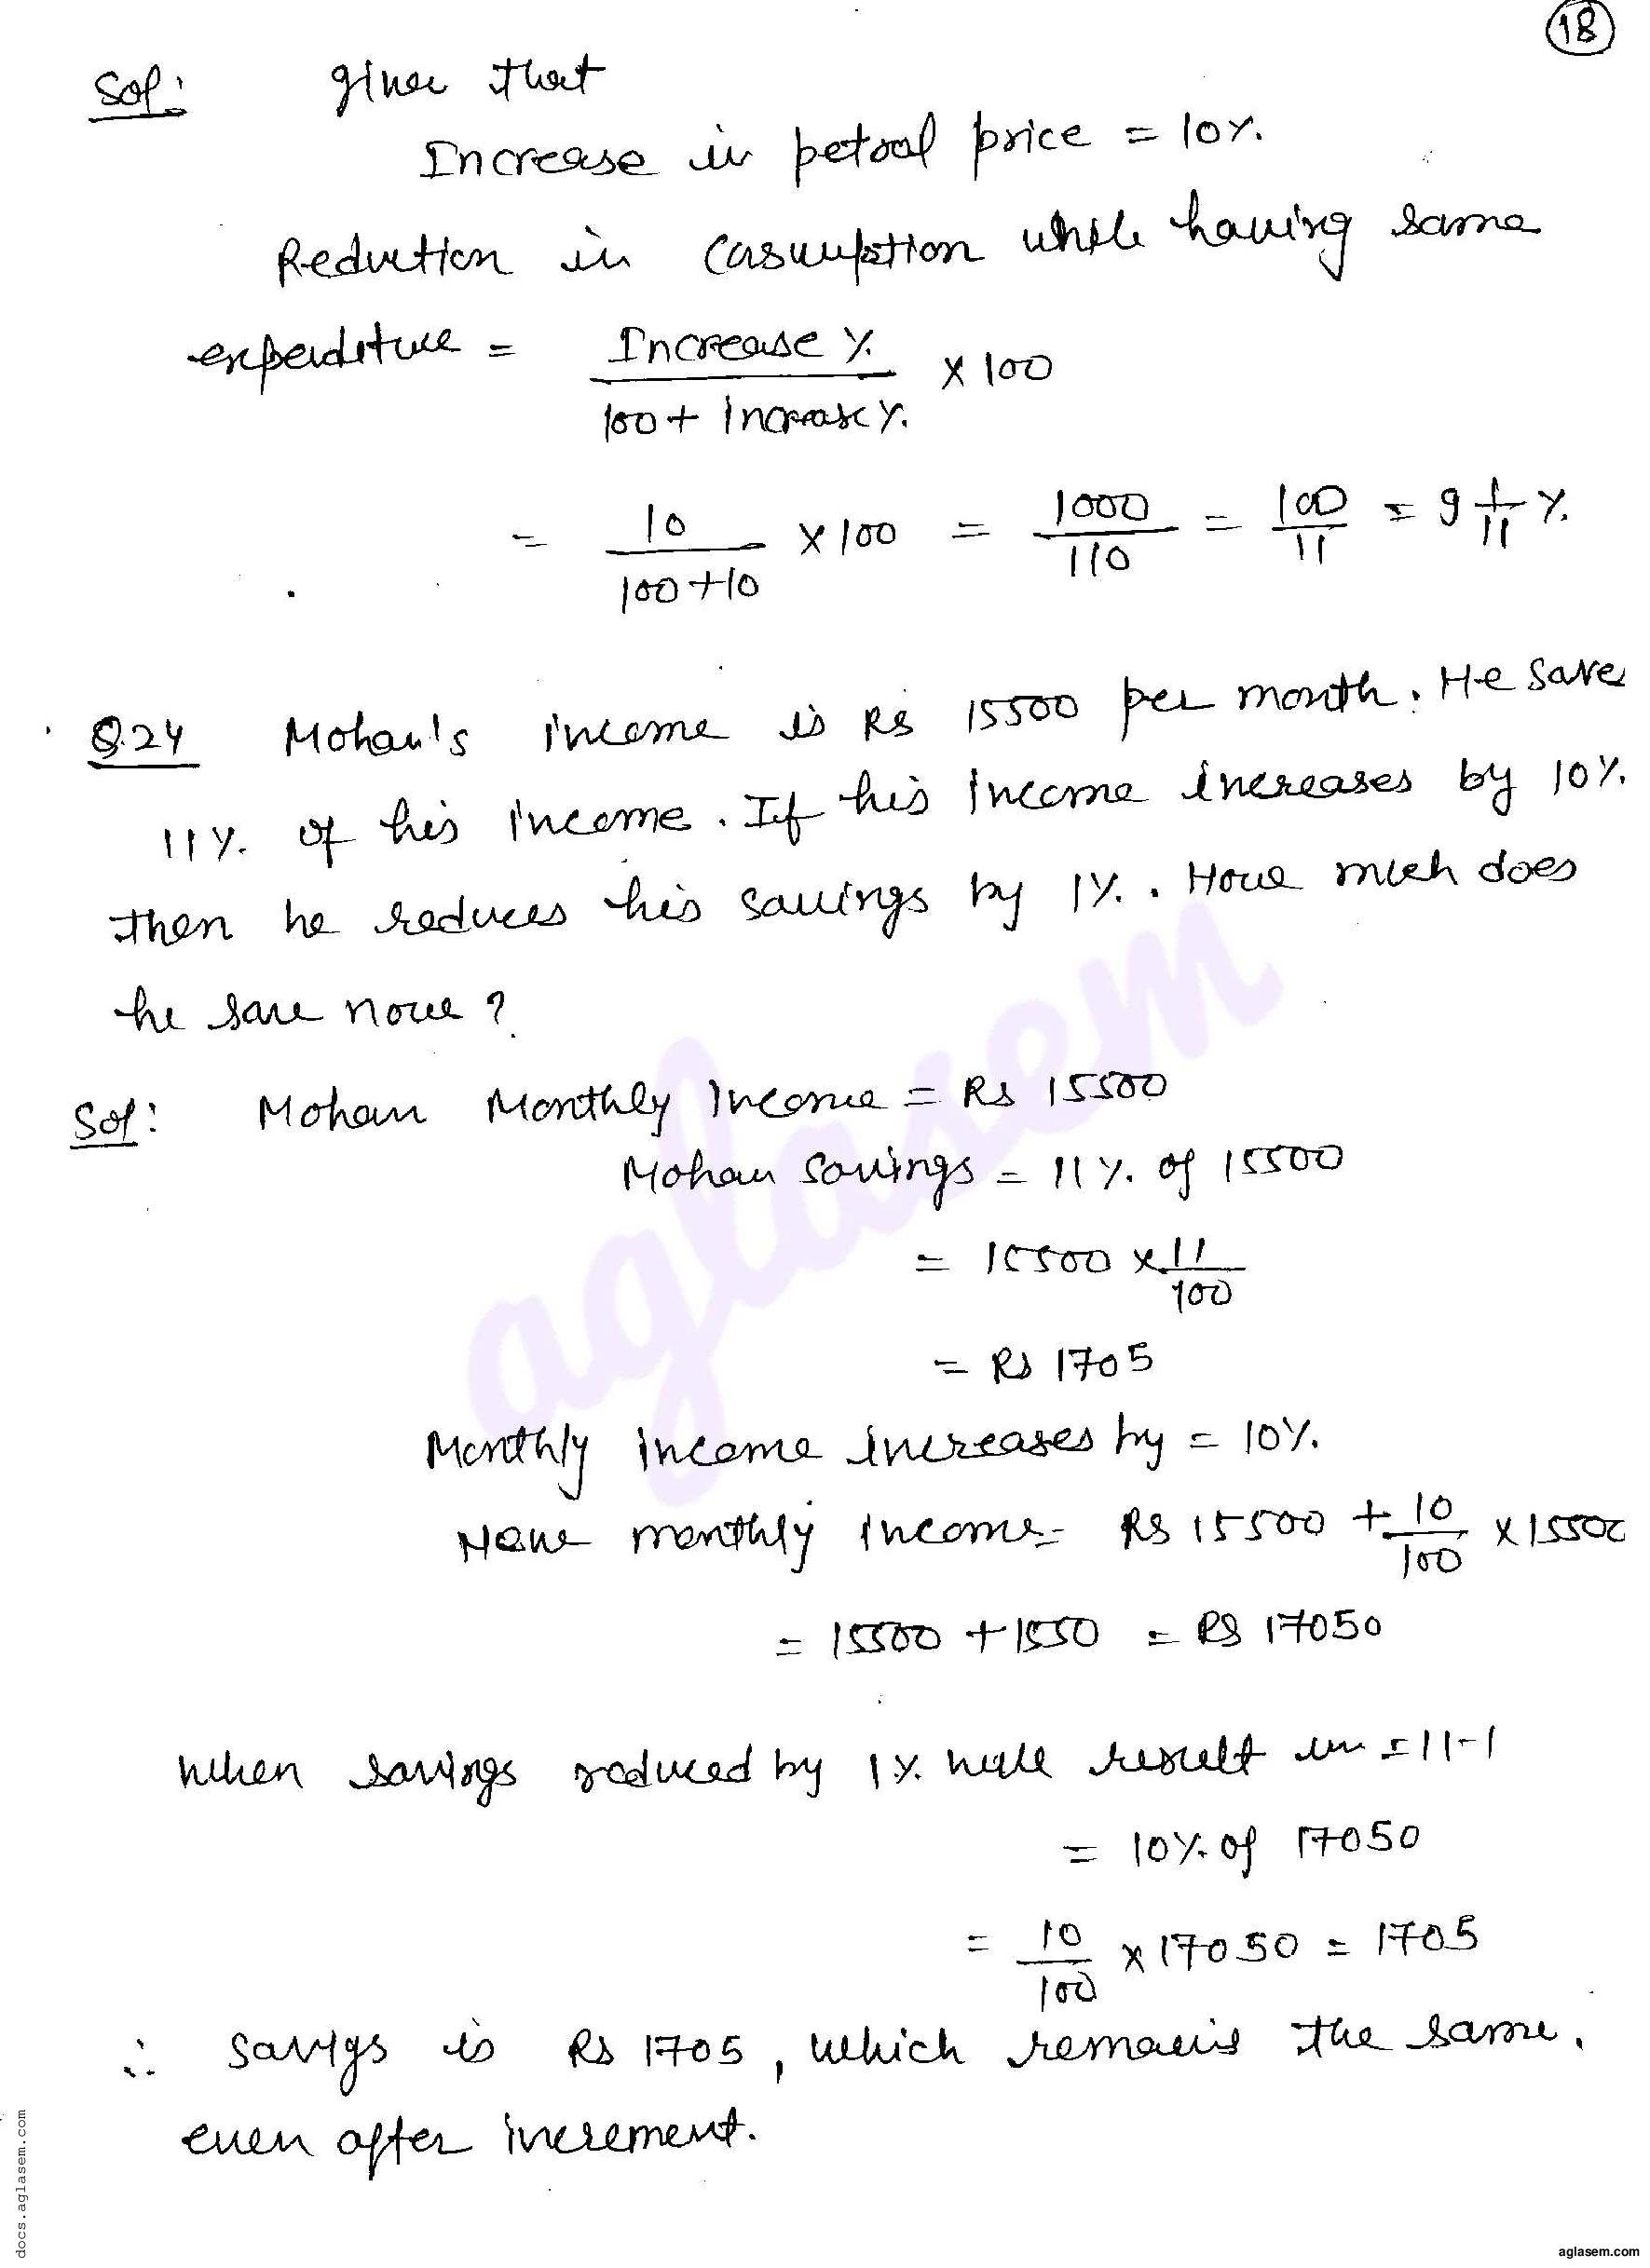 18
Sol: given that
Increase in petrol price = 10%.
Reduction in consumption while having same
expenditure = Increase % / 100 + Increase % × 100
= 10 / 100+10 × 100 = 1000 / 110 = 100 / 11 = 9 1/11 %
Q.24 Mohan's income is Rs 15500 per month. He saves
11% of his income. If his income increases by 10%.
then he reduces his savings by 1%. How much does
he save now?
Sol: Mohan Monthly Income = Rs 15500
Mohan Savings = 11% of 15500
= 15500 × 11/100
= Rs 1705
Monthly income increases by = 10%.
New monthly income = Rs 15500 + 10/100 × 15500
= 15500 + 1550 = Rs 17050
When savings reduced by 1% will result in = 11-1
= 10% of 17050
= 10/100 × 17050 = 1705
∴ Savigs is Rs 1705, which remains the same.
even after increment.
aglasem
docs.aglasem.com
aglasem.com